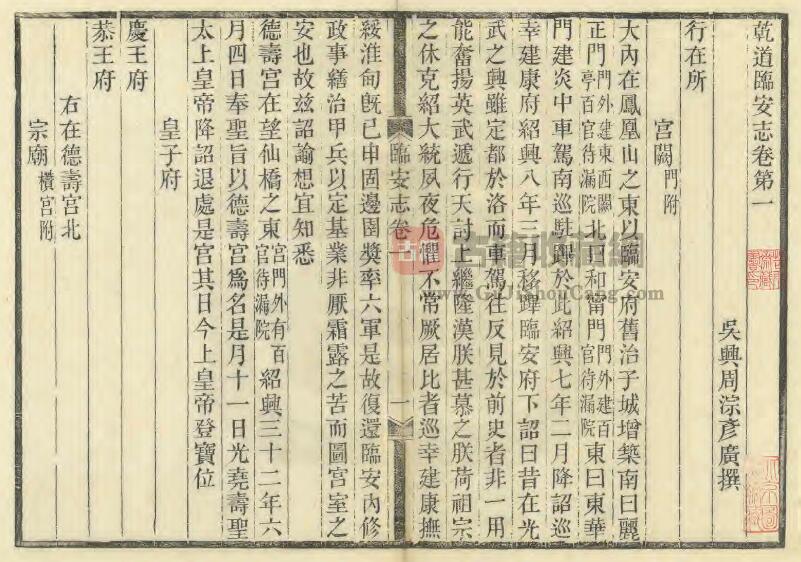 乾道臨安志卷第一
吳興周淙彥廣撰
行在所
宮闕門附
大內在鳳凰山之東以臨安府舊治子城增築南曰麗
正門門外建東西闕亭百官待漏院北曰和甯門門外建百官待漏院東曰東華
門建炎中車駕南巡駐蹕於此紹興七年二月降詔巡
幸建康府紹興八年三月移蹕臨安府下詔曰昔在光
武之興雖定都於洛而車駕往反見於前史者非一用
能奮揚英武遞行天討上繼隆漢朕甚慕之朕荷祖宗
之休克紹大統夙夜危懼不常厥居比者巡幸建康撫
臨安志卷一
一
綏淮甸旣已申固邊圉奬率六軍是故復還臨安內修
政事繕治甲兵以定基業非厭霜露之苦而圖宮室之
安也故茲詔諭想宜知悉
德壽宮在望仙橋之東宮門外有百官待漏院紹興三十二年六
月四日奉聖旨以德壽宮爲名是月十一日光堯壽聖
太上皇帝降詔退處是宮其日今上皇帝登寶位
皇子府
慶王府
恭王府
右在德壽宮北
宗廟欑宮附
古籍收藏網
www.GuJiShouCang.com